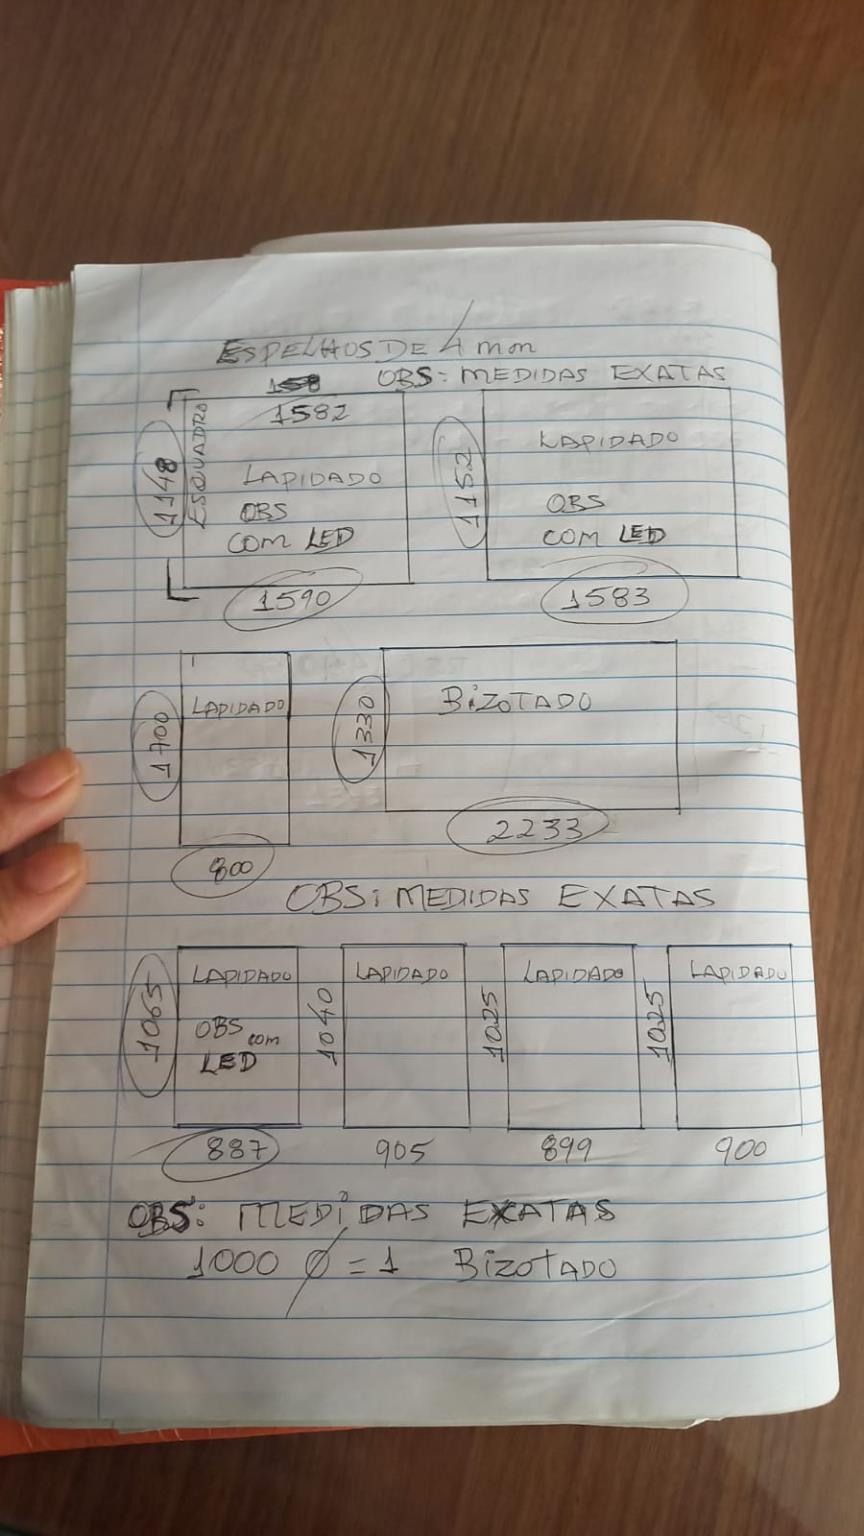 ESPELHOS DE 4 mm
OBS: MEDIDAS EXATAS
1582
ESQUADRO
1148
LAPIDADO
OBS
COM LED
1590
1152
LAPIDADO
OBS
COM LED
1583
1700
LAPIDADO
800
1330
BIZOTADO
2233
OBS: MEDIDAS EXATAS
1065
LAPIDADO
OBS com
LED
887
1040
LAPIDADO
905
1025
LAPIDADO
899
1025
LAPIDADO
900
OBS: MEDIDAS EXATAS
1000 Ø = 1 BIZOTADO